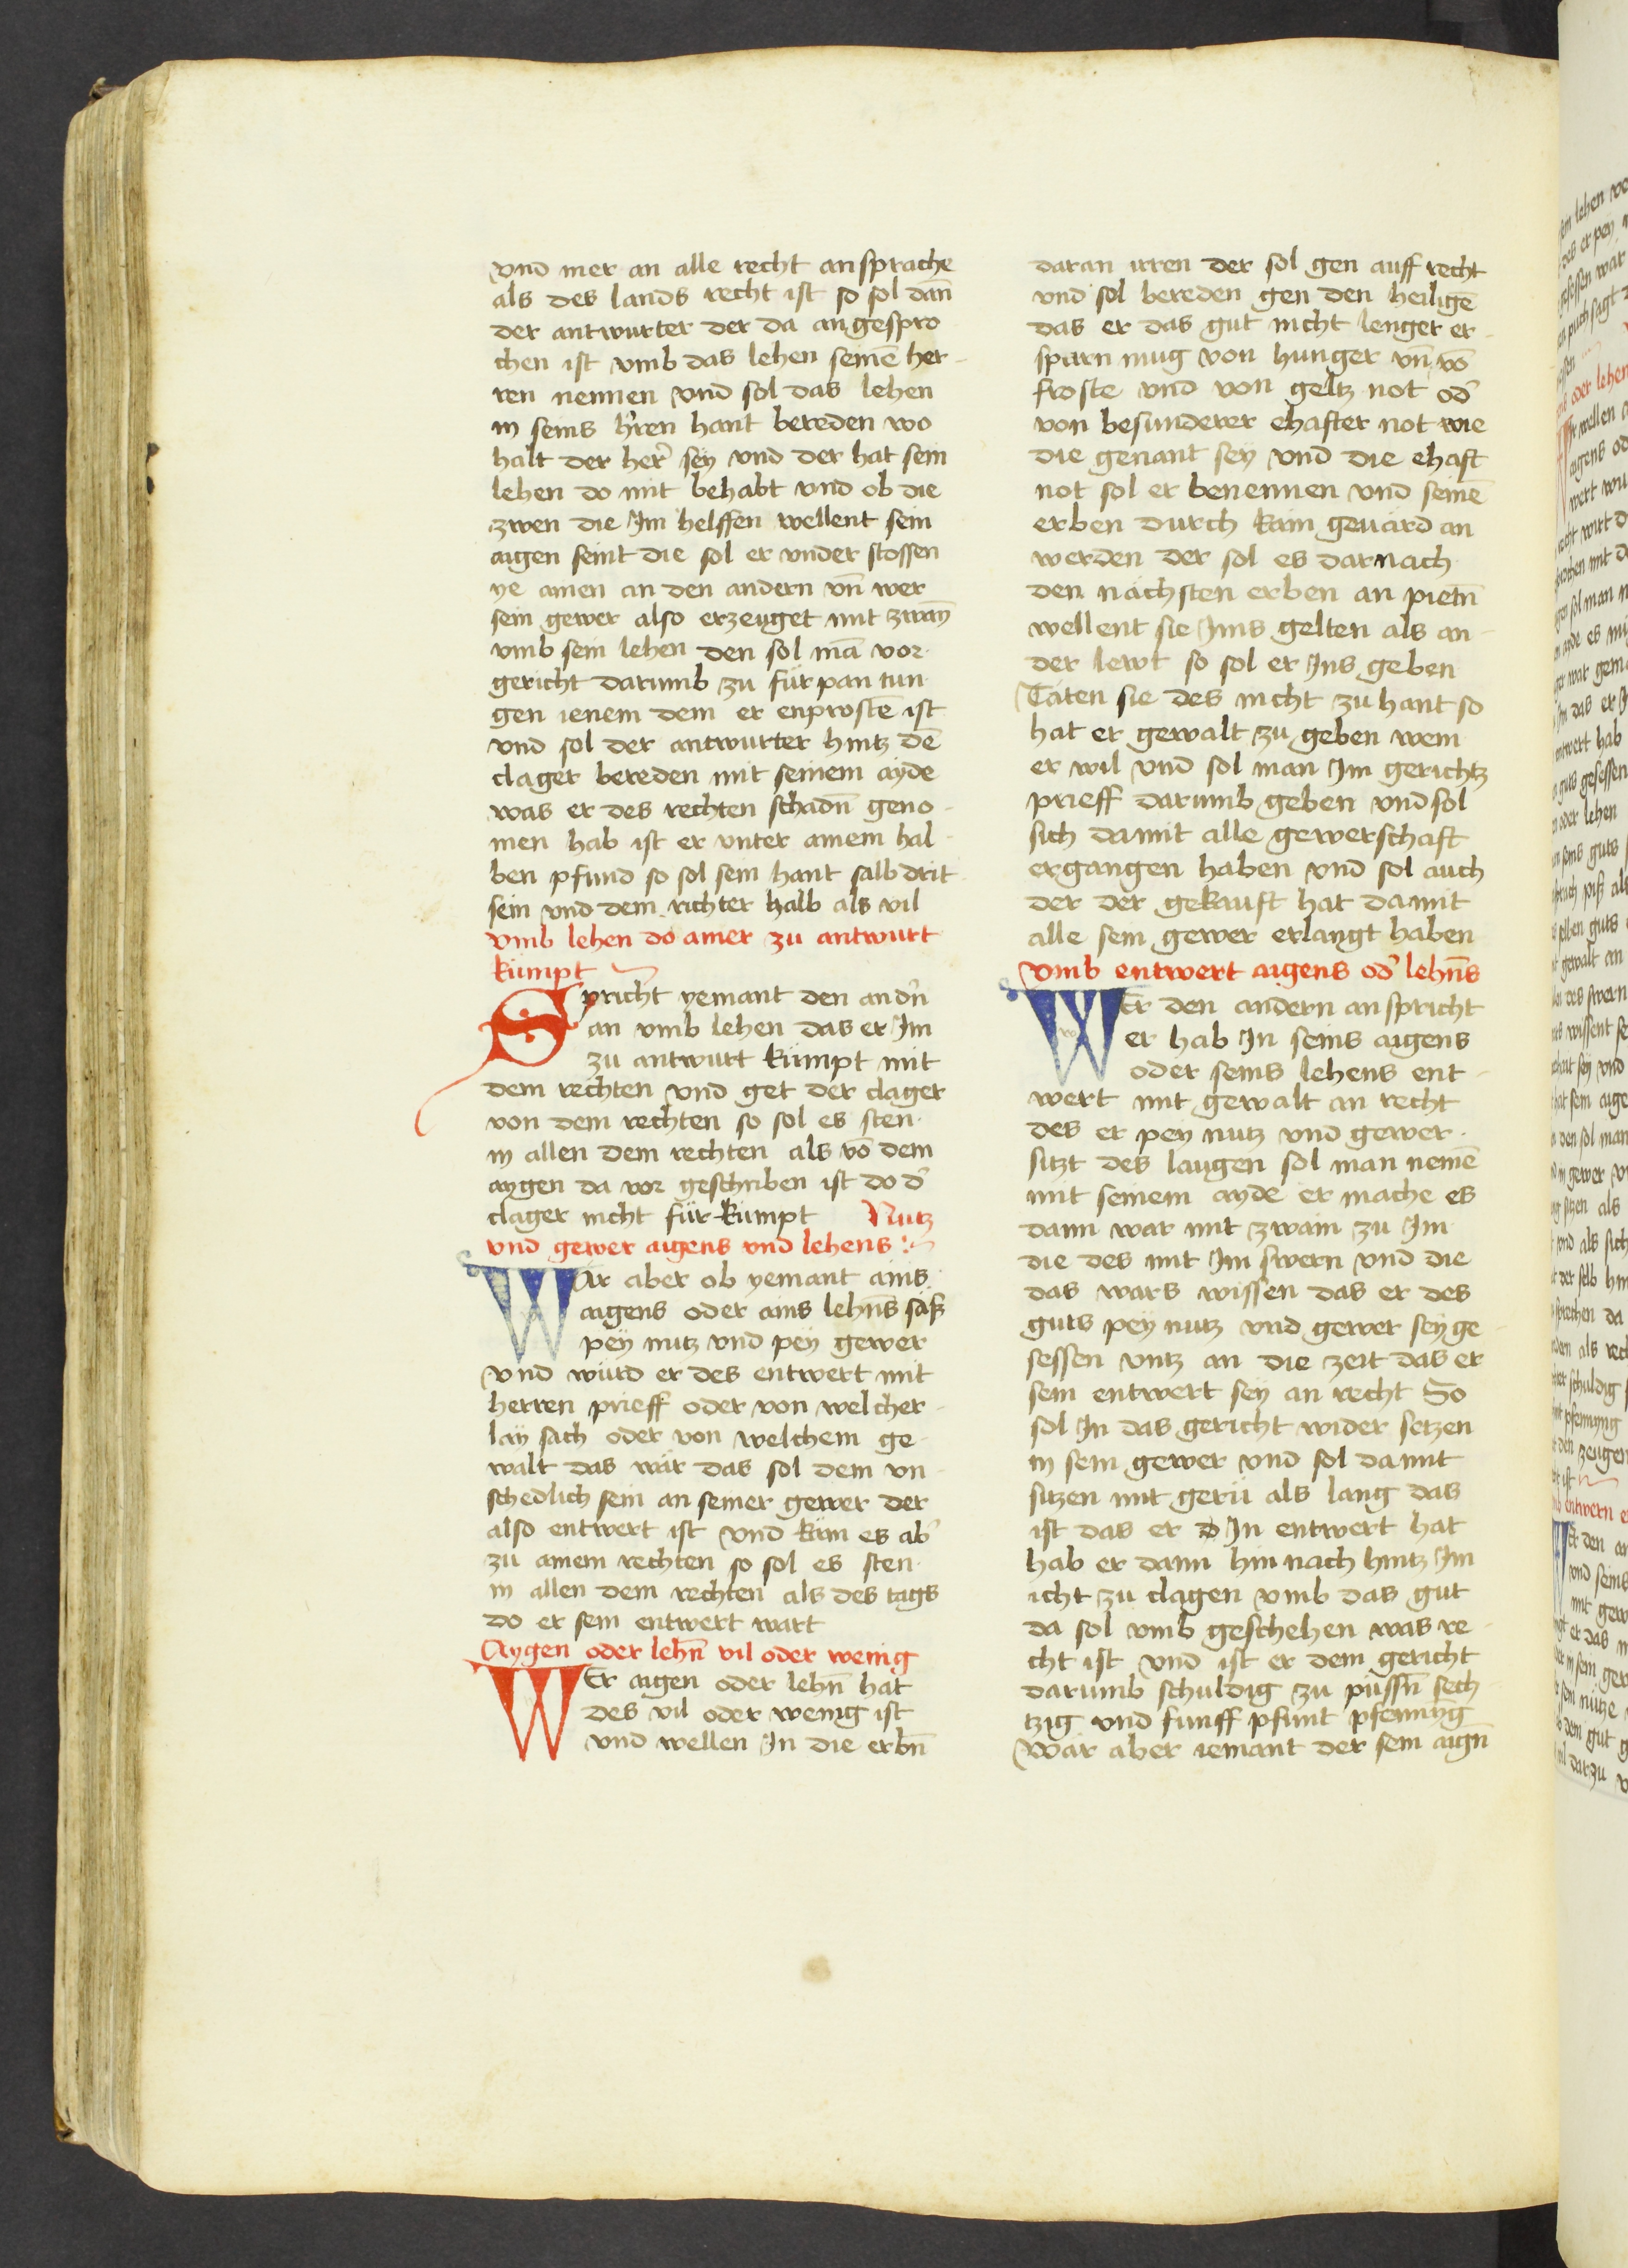 vnd mer an alle recht ansprache
als des lands recht ist so sol dan̄
der antwurter der da angespro
chen ist vmb das lehen seinē her-
ren nennen vnd sol das lehen
in seins h'ren hant bereden wo
halt der her' sey vnd der hat sein
lehen do mit behabt vnd ob die
zwen die Im helffen wellent sein
aigen seint die sol er vnder stossen
ye ainen an den andern vn̄ wer
sein gewer also erzeuget mit zwaÿ
vmb sein lehen den sol mā vor
gericht darumb zu fürpan tun
gen ienem dem er enprostē ist
vnd sol der antwurter hintz dē
clager bereden mit seinem ayde
was er des rechten schadn̄ geno-
men hab ist er vnter ainem hal-
ben pfund so sol sein hant salb drit
sein vnd dem richter halb als vil
vmb lehen do ainer zu antwurt
kümpt
Spricht yemant den andn̄
an vmb lehen das er Im
zu antwurt kümpt mit
dem rechten vnd get der clager
von dem rechten so sol es sten
in allen dem rechten als vō dem
aygen da vor geschriben ist do d'
clager nicht für kümpt Nutz
vnd gewer aigens vnd lehens :~
Wär aber ob yemant ains
aigens oder ains lehn̄s säß
pey nutz vnd pey gewer
vnd würd er des entwert mit
herren prieff oder von welcher-
lay sach oder von welchem ge-
walt das wär das sol dem vn-
schedlich sein an seiner gewer der
also entwert ist vnd käm es ab'
zu ainem rechten so sol es sten
in allen dem rechten als des tags
do er sein entwert wart
Aygen oder lehn̄ vil oder wenig
WEr aigen oder lehn̄ hat
des vil oder wenig ist
vnd wellen In die erbn̄
daran irren der sol gen auff recht
vnd sol bereden gen den heiligē
das er das gut nicht lenger er-
sparn mug von hunger vn̄ vō
froste vnd von geltz not od'
von besunderer ehafter not wie
die genant sey vnd die ehaft
not sol er benennen vnd seinē
erben durch kain geuärd an
werden der sol es darnach
den nächsten erben an pietn̄
wellent sie Ims gelten als an-
der lewt so sol er Ins geben
Täten sie des nicht zu hant so
hat er gewalt zu geben wem
er wil vnd sol man Im gerichtz
prieff darumb geben vnd sol
sich damit alle gewerschaft
ergangen haben vnd sol auch
der der gekauft hat damit
alle sein gewer erlangt haben
vmb entwert aigens od' lehn̄s
WEr den andern anspricht
er hab In seins aigens
oder seins lehens ent-
wert mit gewalt an recht
des er pey nutz vnd gewer
sitzt des laugen sol man nemē
mit seinem ayde er mache es
dann war mit zwain zu Im
die des mit Im swern vnd die
das wars wissen das er des
guts pey nutz vnd gewer sey ge-
sessen vntz an die zeit das er
sein entwert sey an recht So
sol In das gericht wider setzen
in sein gewer vnd sol damit
sitzen mit gerü als lang das
ist das er d In entwert hat
hab er dann hin nach hintz Im
icht zu clagen vmb das gut
da sol vmb geschehen was re-
cht ist vnd ist er dem gericht
darumb schuldig zu püssn̄ sech-
tzig vnd funff pfunt pfenning
Wär aber iemant der sein aign̄